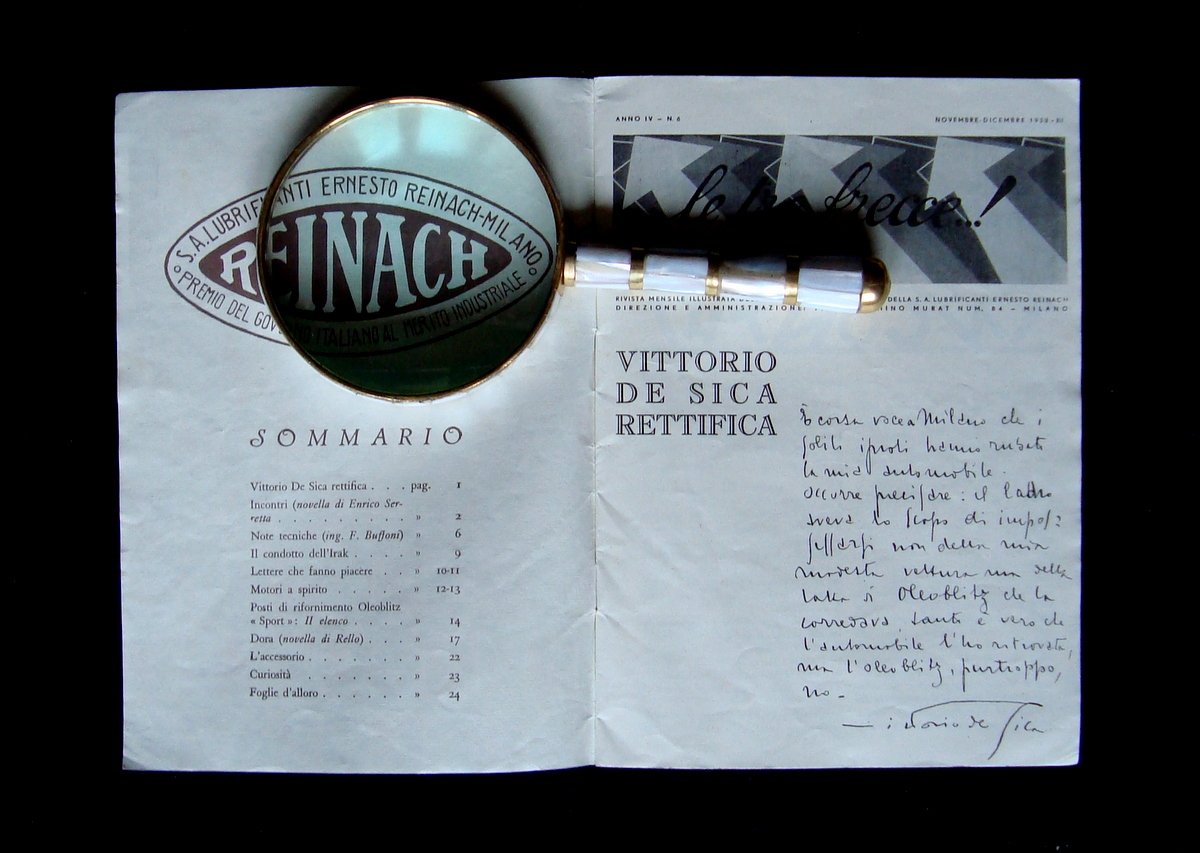 S.A. LUBRIFICANTI ERNESTO REINACH-MILANO
REINACH
PREMIO DEL GOVERNO ITALIANO AL MERITO INDUSTRIALE
SOMMARIO
Vittorio De Sica rettifica . . . pag. 1
Incontri (novella di Enrico Ser-
retta . . . . . . . . . » 2
Note tecniche (ing. F. Buffoni) » 6
Il condotto dell'Irak . . . . » 9
Lettere che fanno piacere . . » 10-11
Motori a spirito . . . . . » 12-13
Posti di rifornimento Oleoblitz
« Sport »: Il elenco . . . . » 14
Dora (novella di Rello) . . . » 17
L'accessorio . . . . . . . » 22
Curiosità . . . . . . . » 23
Foglie d'alloro . . . . . . » 24
ANNO IV — N. 6
NOVEMBRE-DICEMBRE
le frecce..!
RIVISTA MENSILE ILLUSTRATA DELLA S. A. LUBRIFICANTI ERNESTO REINACH
DIREZIONE E AMMINISTRAZIONE: MURAT NUM. 84 — MILANO
VITTORIO
DE SICA
RETTIFICA
È corsa voce a Milano che i
soliti ignoti hanno rubato
la mia automobile.
Occorre precisare: il ladro
aveva lo scopo di impos=
sessarsi non della mia
modesta vettura ma della
latta di Oleoblitz che la
corredava. Tanto è vero che
l'automobile l'ho ritrovata,
ma l'oleoblitz, purtroppo,
no.
Vittorio de Sica